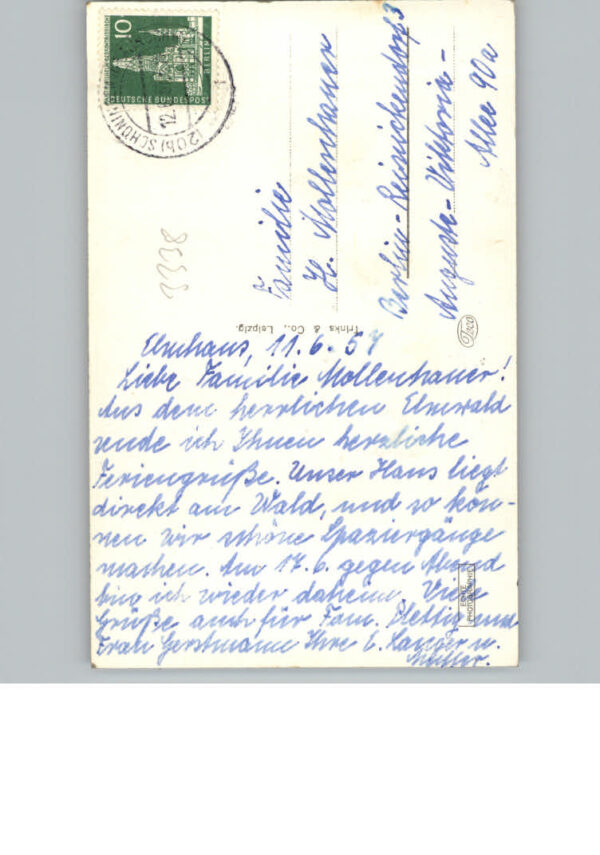 10
DEUTSCHE BUNDESPOST
BERLIN
(20b) SCHÖNIN
12.6.
3338
Familie
H. Mollenhauer
Berlin-Reinickendorf
Auguste-Viktoria-
Allee 90a
Trinks & Co., Leipzig.
Elmhaus, 11.6.57
Liebe Familie Mollenhauer!
Aus dem herrlichen Elmwald
sende ich Ihnen herzliche
Feriengrüße. Unser Haus liegt
direkt am Wald, und so kön-
nen wir schöne Spaziergänge
machen. Am 17.6. gegen Abend
bin ich wieder daheim. Viele
Grüße auch für Fam. und
Frau Gerstmann Ihre E. u.
Mutter.
ECHTE
PHOTOGRAPHIE